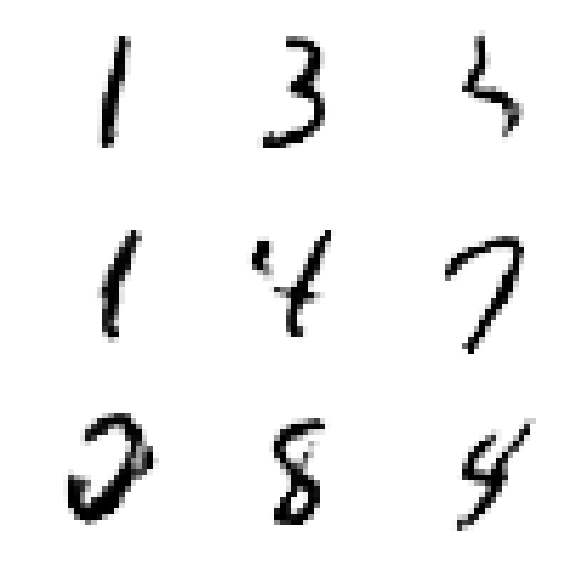 1 3 5
1 4 7
8 4